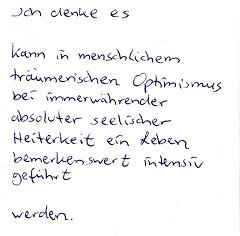 Ich denke es
kann in menschlichem
träumerischen Optimismus
bei immerwährender
absoluter seelischer
Heiterkeit ein Leben
bemerkenswert intensiv
geführt
werden.